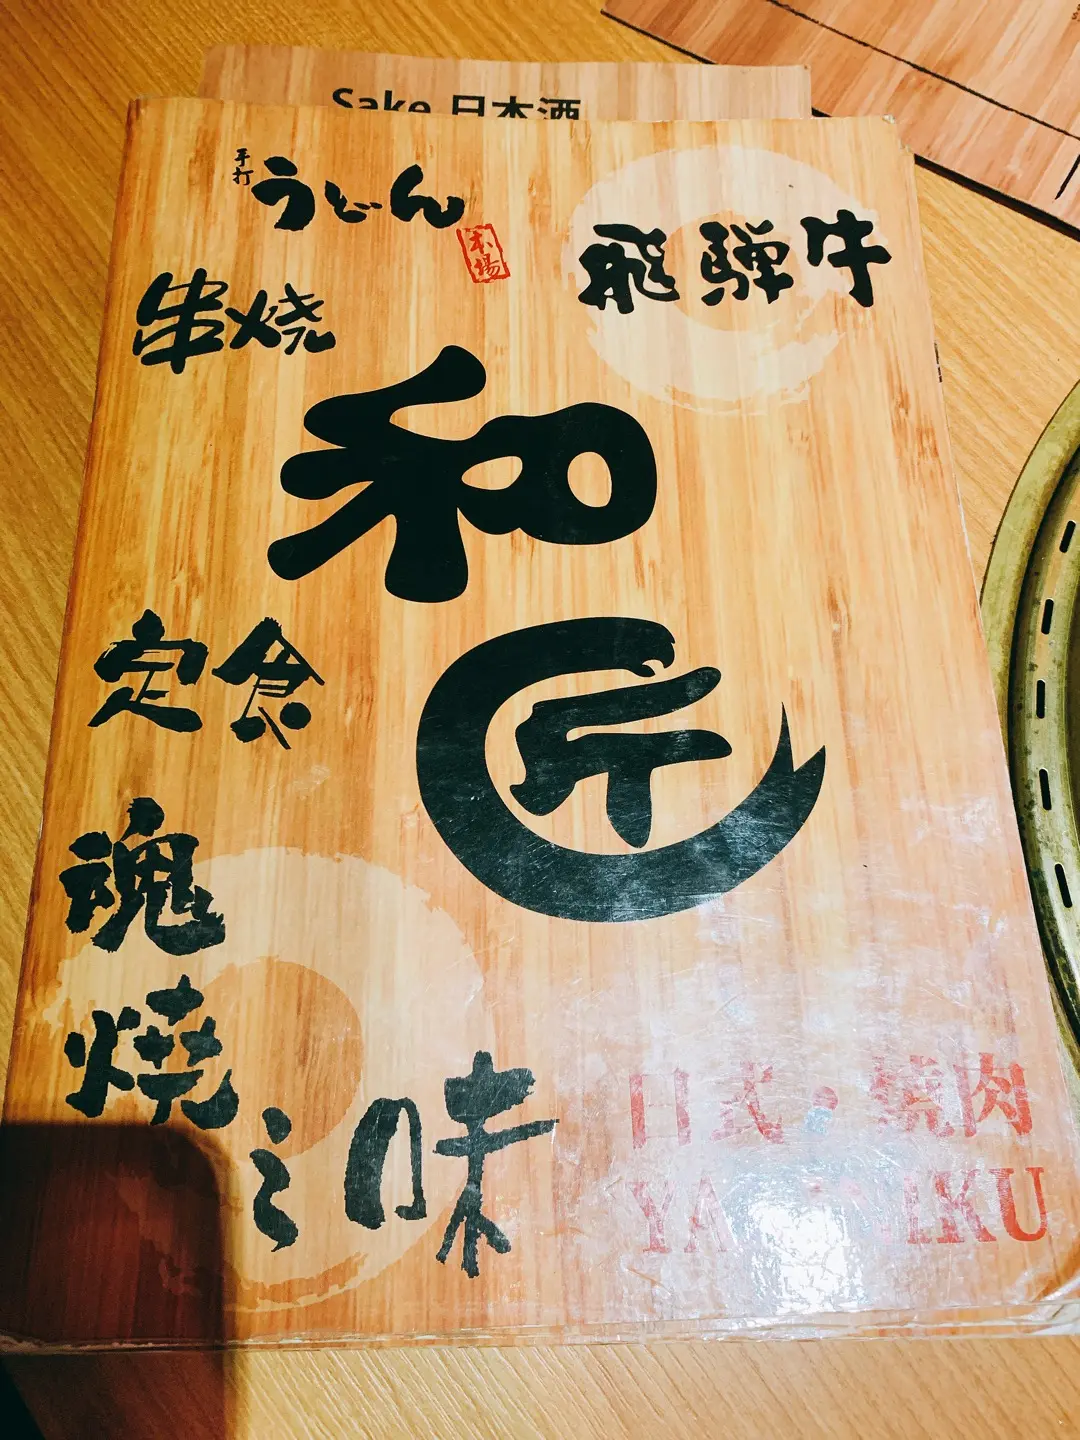 Sake 日本酒
手打
うどん
本場
飛騨牛
串焼
和匠
定食
魂
燒
之味
日式・燒肉
YAKINIKU